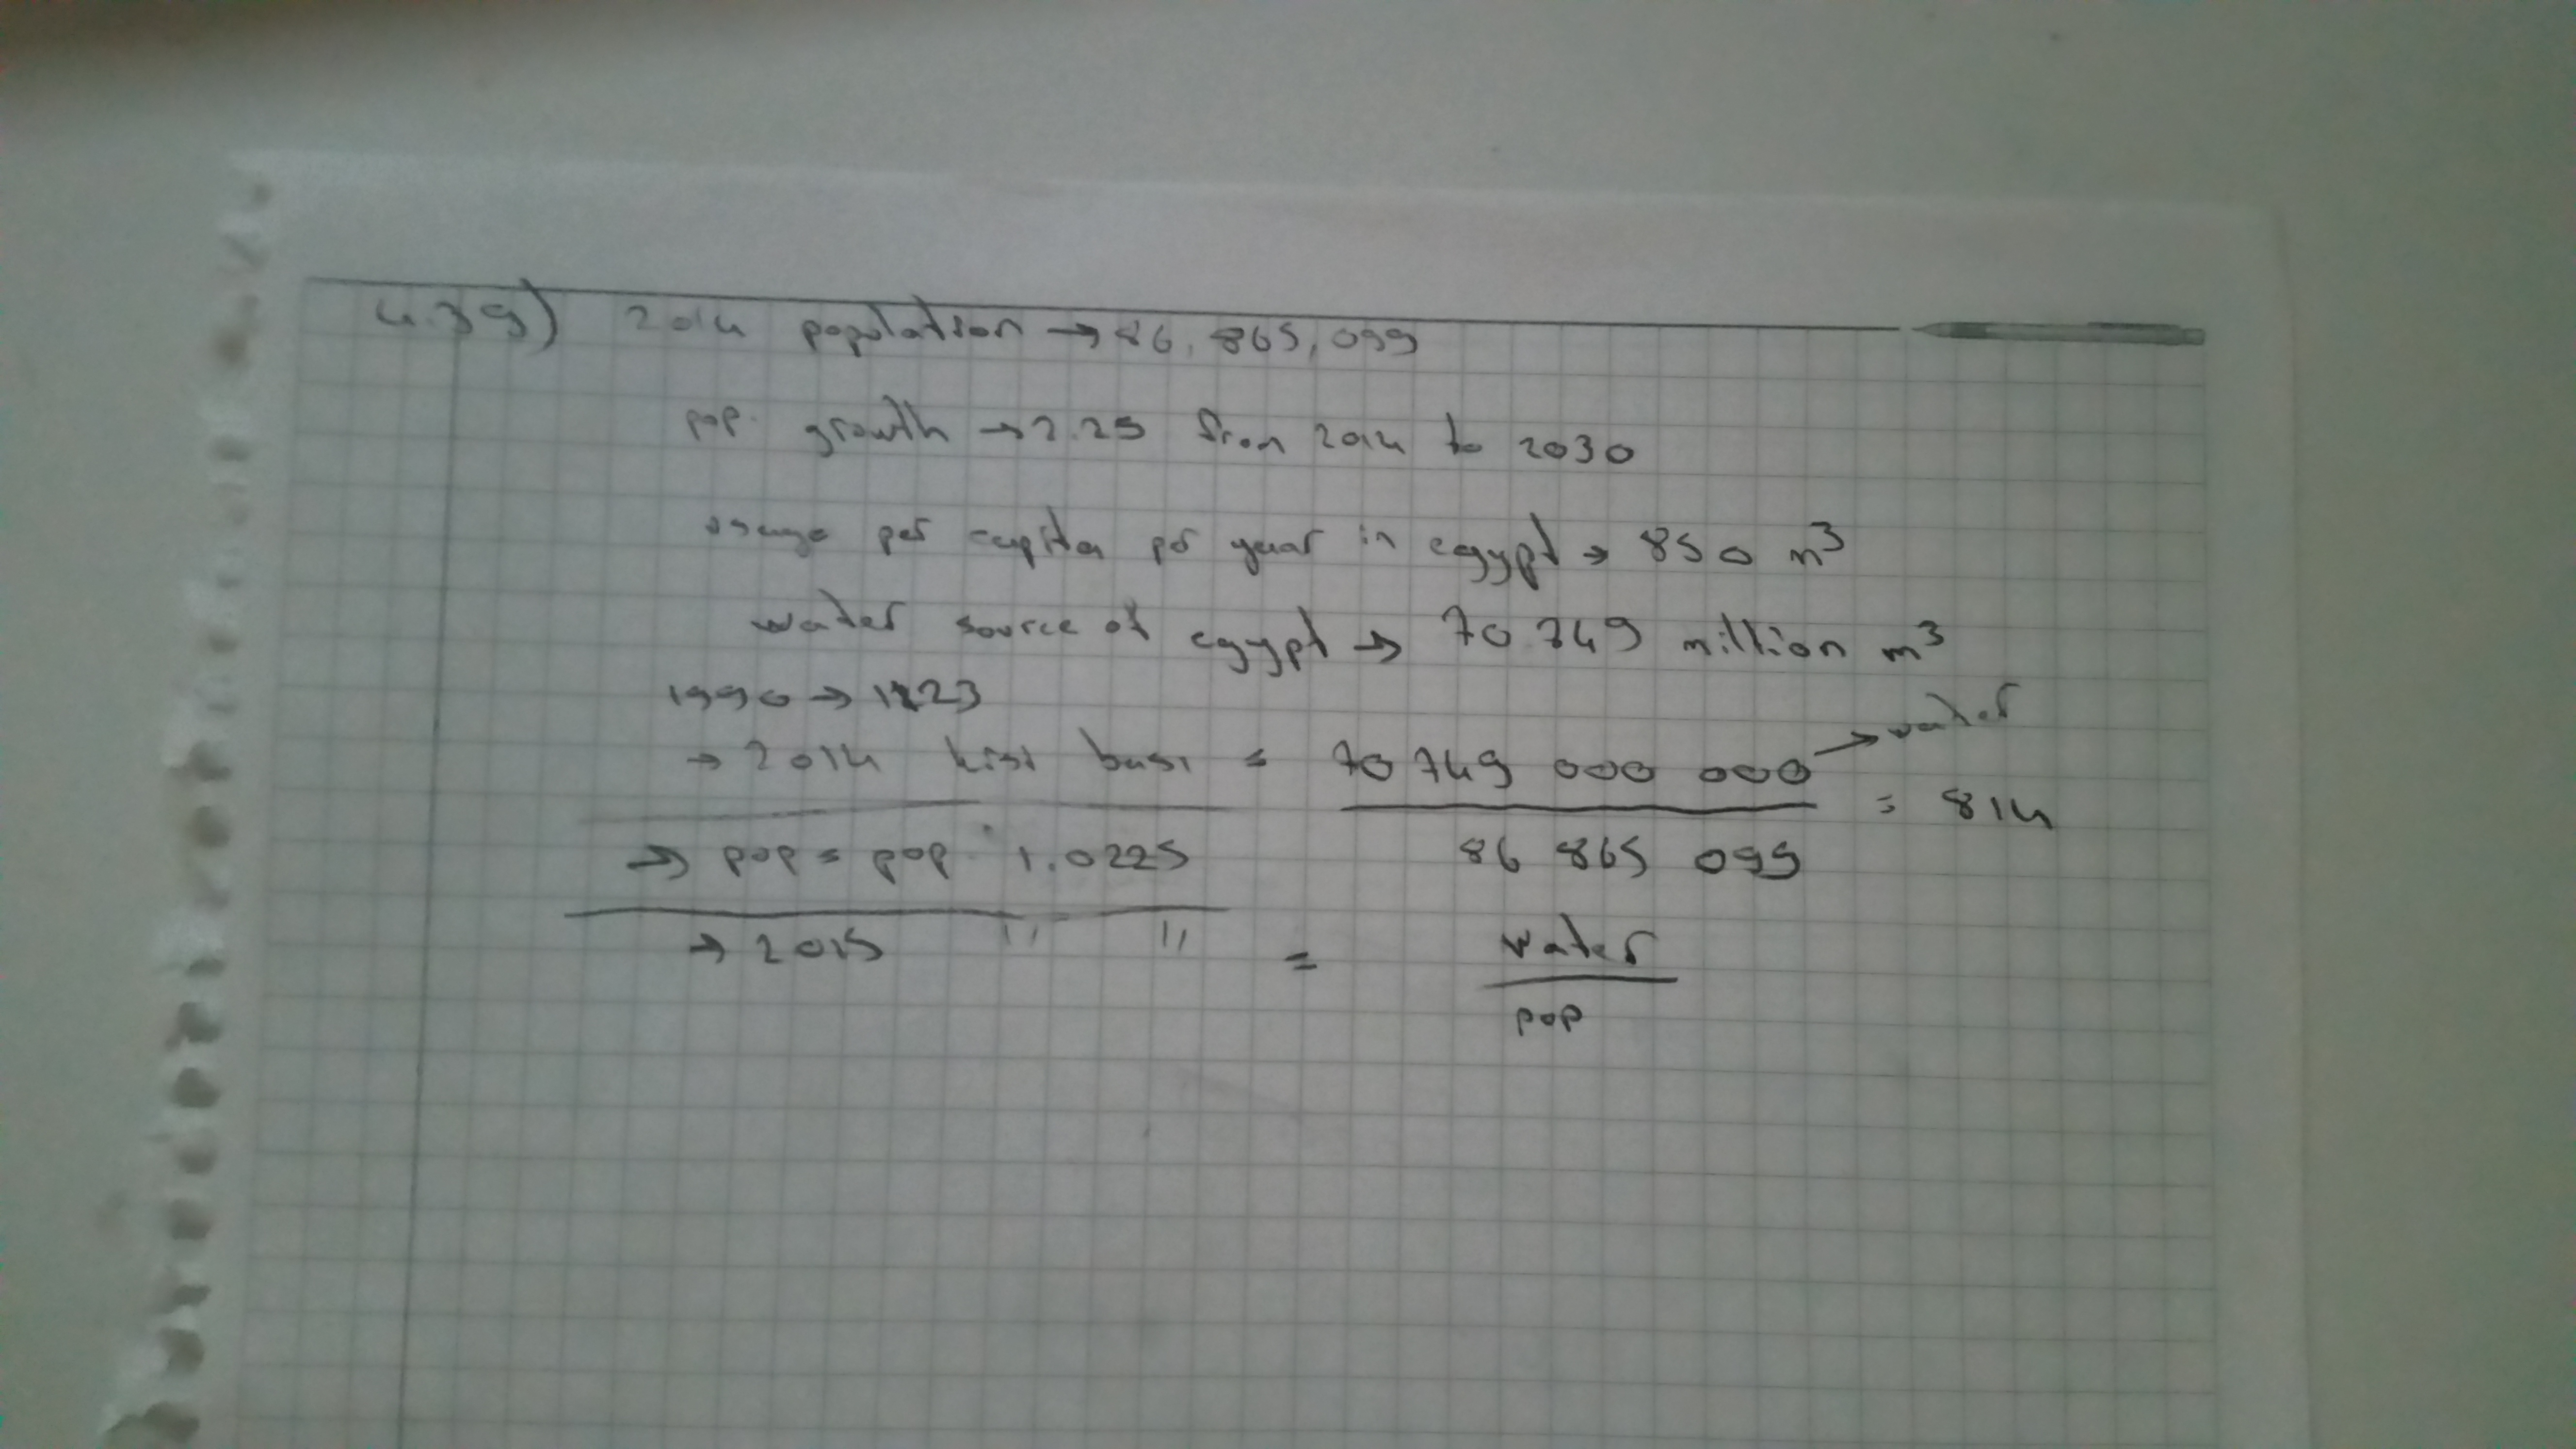 4.39) 2014 population → 86,865,099
pop. growth → 2.25 from 2014 to 2030
usage per capita per year in egypt → 850 m³
water source of egypt → 70 749 million m³
1990 → 1123
→ 2014 kişi başı = 70 749 000 000 → water
86 865 099 = 814
→ pop = pop · 1.0225
→ 2015 " " = water
pop